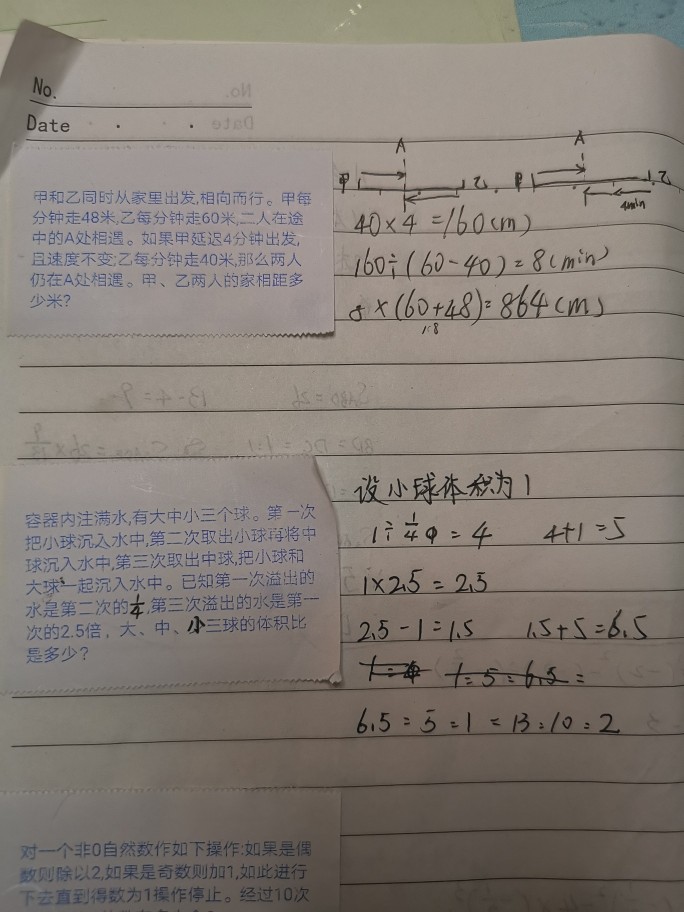 No.
Date
甲和乙同时从家里出发,相向而行。甲每
分钟走48米,乙每分钟走60米,二人在途
中的A处相遇。如果甲延迟4分钟出发,
且速度不变;乙每分钟走40米,那么两人
仍在A处相遇。甲、乙两人的家相距多
少米?
A A
甲 乙 甲 乙
4min
40×4=160(m)
160÷(60-40)=8(min)
8×(60+48)=864(m)
108
容器内注满水,有大中小三个球。第一次
把小球沉入水中,第二次取出小球再将中
球沉入水中,第三次取出中球,把小球和
大球一起沉入水中。已知第一次溢出的
水是第二次的1/4,第三次溢出的水是第一
次的2.5倍，大、中、小三球的体积比
是多少?
设小球体积为1
1÷1/4=4 4+1=5
1×2.5=2.5
2.5-1=1.5 1.5+5=6.5
1:5:6.5=
6.5:5:1=13:10:2
对一个非0自然数作如下操作:如果是偶
数则除以2,如果是奇数则加1,如此进行
下去直到得数为1操作停止。经过10次